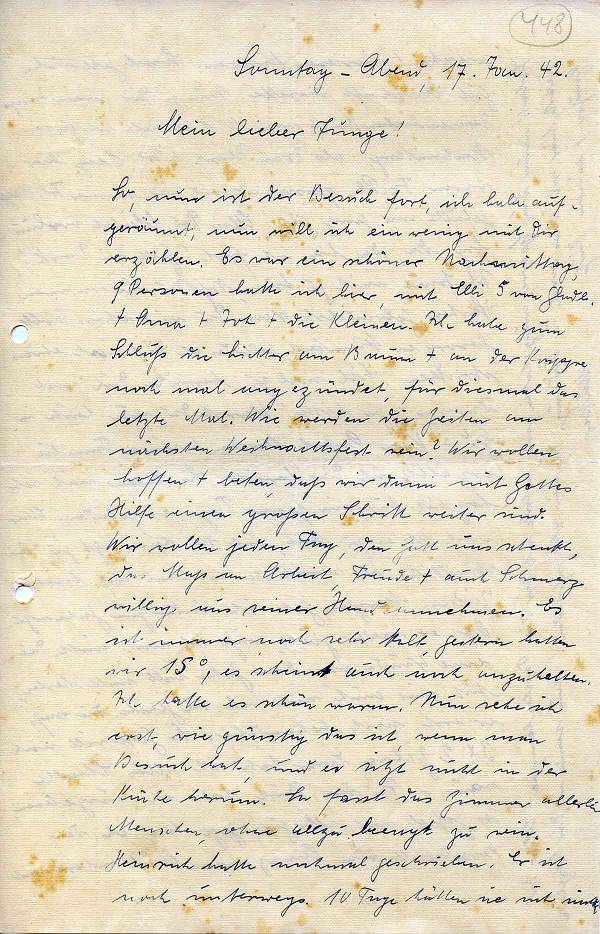 448
Sonntag - Abend, 17. Jan. 42.
Mein lieber Junge!
So, nun ist der Besuch fort, ich habe auf-
geräumt, nun will ich ein wenig mit Dir
erzählen. Es war ein schöner Nachmittag,
9 Personen hatte ich hier, mit Elli 5 von
+ Oma + + die Kleinen. Ich habe zum
Schluß die Lichter am Baum + an der Krippe
noch mal angezündet, für diesmal das
letzte Mal. Wie werden die Zeiten am
nächsten Weihnachtsfest sein? Wir wollen
hoffen + beten, daß wir dann mit Gottes
Hilfe einen großen Schritt weiter sind.
Wir wollen jeden Tag, den Gott uns schenkt,
das Maß an Arbeit, Freude + auch Schmerz
willig aus seiner Hand annehmen. Es
ist immer noch sehr kalt, gestern hatten
wir 15°, es scheint auch noch anzuhalten.
Ich hatte es schön warm. Nun sehe ich
erst, wie günstig das ist, wenn man
Besuch hat, und er sitzt nicht in der
Küche herum. So fasst das Zimmer allerlei
Menschen, ohne allzu beengt zu sein.
Heinrich hatte nochmal geschrieben. Er ist
noch unterwegs. 10 Tage hätten sie sich